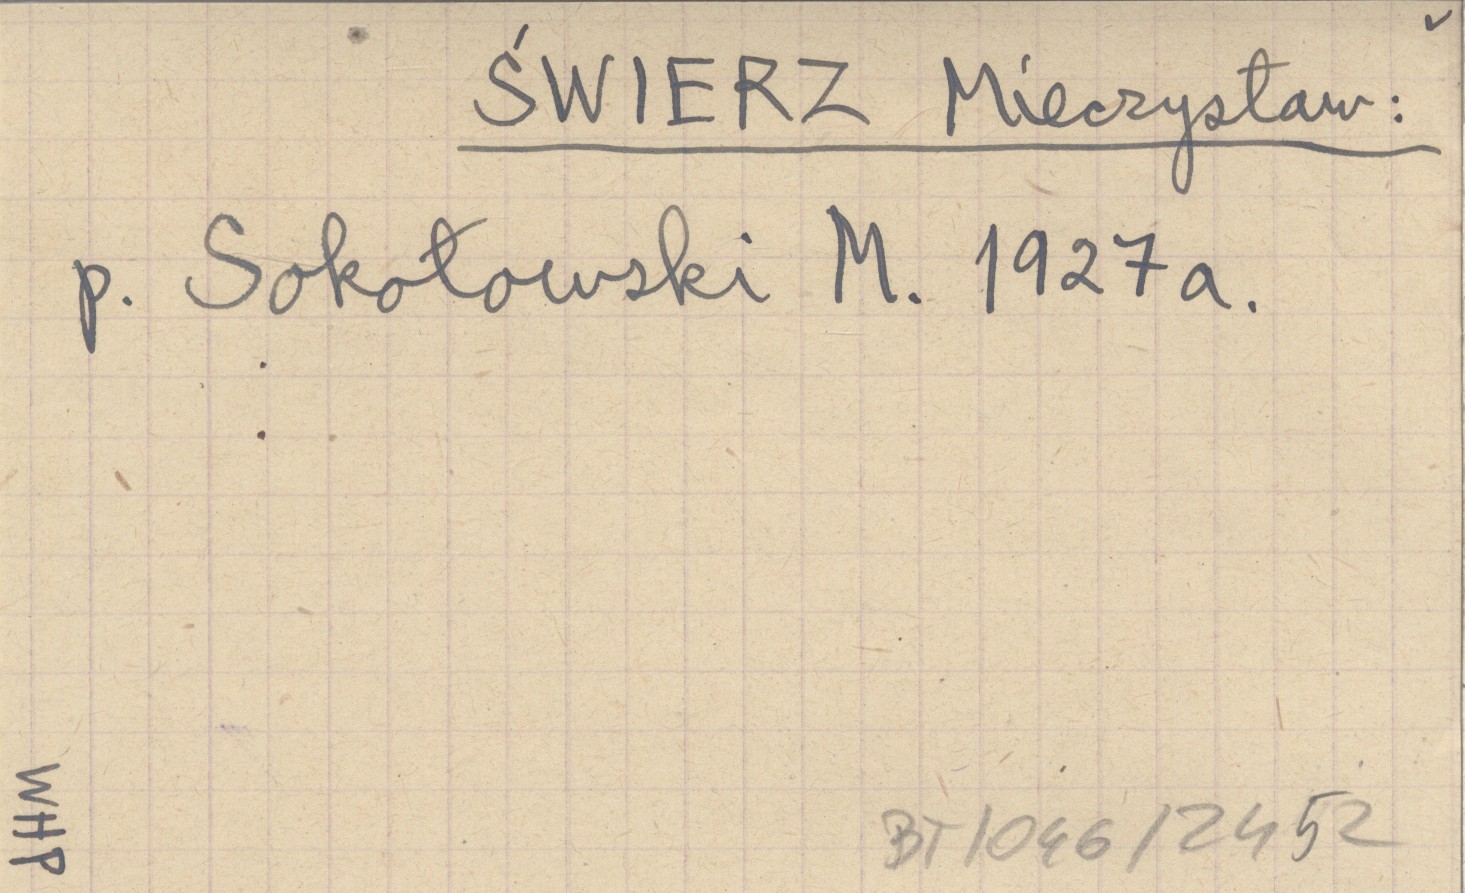 ŚWIERZ Mieczysław:
p. Sokołowski M. 1927a.
WHP
BT/046/2452